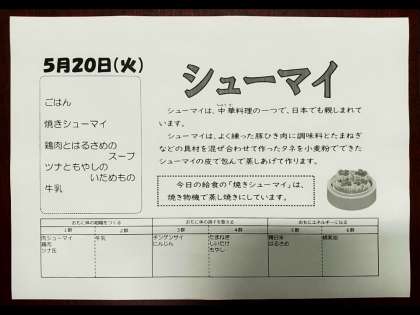 5月20日(火)
シューマイ
ごはん
焼きシューマイ
鶏肉とはるさめの
スープ
ツナともやしの
いためもの
牛乳
シューマイは、中華料理の一つで、日本でも親しまれて
います。
シューマイは、よく練った豚ひき肉に調味料とたまねぎ
などの具材を混ぜ合わせて作ったタネを小麦粉でできた
シューマイの皮で包んで蒸しあげて作ります。
今日の給食の「焼きシューマイ」は、
焼き物機で蒸し焼きにしています。
おもに体の組織をつくる
おもに体の調子を整える
おもにエネルギーになる
1群 2群 3群 4群 5群 6群
肉シューマイ 牛乳 チンゲンサイ たまねぎ 精白米
鶏肉 にんじん しいたけ はるさめ
ツナ缶 もやし